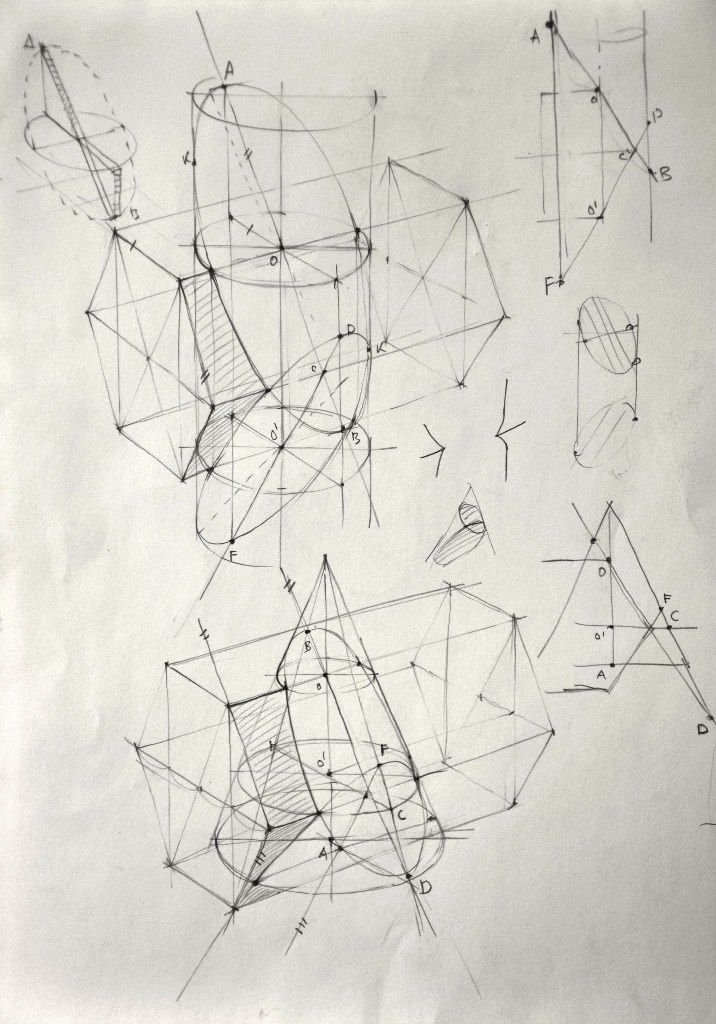 A
B
A
K
O
D
C
K
O'
B
F
A
O
D
C
B
O'
F
B
O
O'
F
C
A
D
O
F
C
O'
A
D